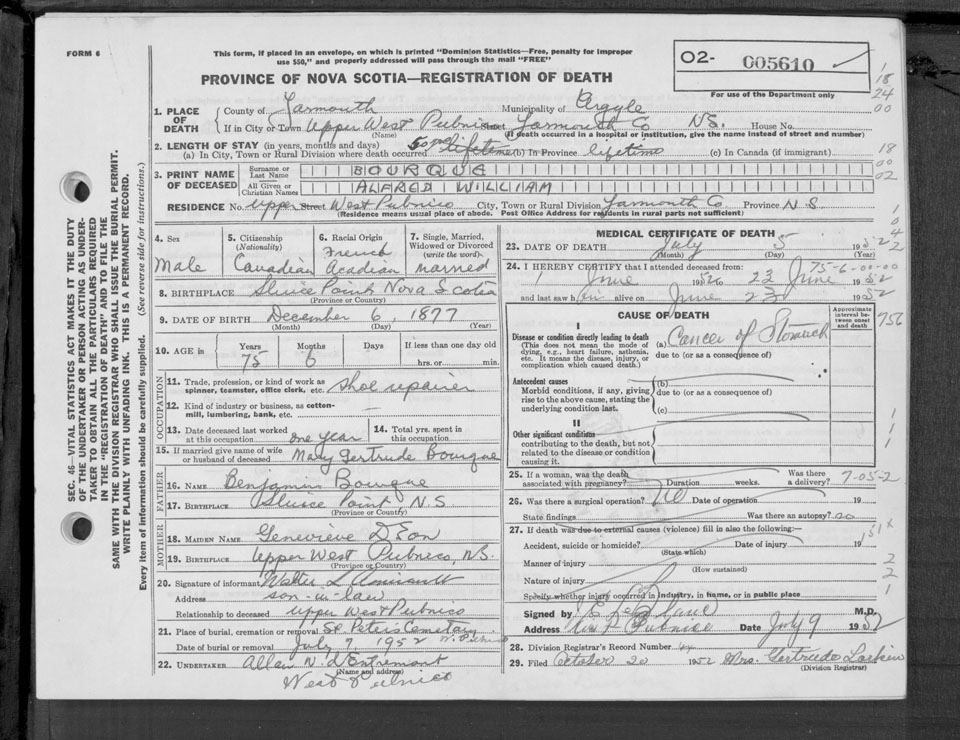 FORM 6
This form, if placed in an envelope, on which is printed "Dominion Statistics—Free, penalty for improper
use $50," and properly addressed will pass through the mail "FREE"
PROVINCE OF NOVA SCOTIA—REGISTRATION OF DEATH
02- 005610
For use of the Department only
18
24
00
18
00
02
SEC. 46—VITAL STATISTICS ACT MAKES IT THE DUTY
OF THE UNDERTAKER OR PERSON ACTING AS UNDER-
TAKER TO OBTAIN ALL THE PARTICULARS REQUIRED
IN THE "REGISTRATION OF DEATH" AND TO FILE THE
SAME WITH THE DIVISION REGISTRAR WHO SHALL ISSUE THE BURIAL PERMIT.
WRITE PLAINLY WITH UNFADING INK. THIS IS A PERMANENT RECORD.
Every item of information should be carefully supplied. (See reverse side for instructions.)
1. PLACE OF DEATH
County of Yarmouth Municipality of Argyle
If in City or Town Upper West Pubnico Street Yarmouth Co N.S. House No.
(Name) (If death occurred in a hospital or institution, give the name instead of street and number)
2. LENGTH OF STAY (in years, months and days)
(a) In City, Town or Rural Division where death occurred lifetime (b) In Province lifetime (c) In Canada (if immigrant)
3. PRINT NAME OF DECEASED
Surname or Last Name BOURQUE
All Given or Christian Names ALFRED WILLIAM
RESIDENCE No. Upper Street West Pubnico City, Town or Rural Division Yarmouth Co. Province N S
(Residence means usual place of abode. Post Office Address for residents in rural parts not sufficient)
4. Sex Male
5. Citizenship (Nationality) Canadian
6. Racial Origin French Acadian
7. Single, Married, Widowed or Divorced (write the word). married
8. BIRTHPLACE Sluice Point Nova Scotia
(Province or Country)
9. DATE OF BIRTH December 6, 1877
(Month) (Day) (Year)
10. AGE Years 75 Months 6 Days If less than one day old hrs. or min.
OCCUPATION
11. Trade, profession, or kind of work as spinner, teamster, office clerk, etc. Shoe repairer
12. Kind of industry or business, as cotton-mill, lumbering, bank, etc. —
13. Date deceased last worked at this occupation one year
14. Total yrs. spent in this occupation
15. If married give name of wife or husband of deceased Mary Gertrude Bourque
FATHER
16. NAME Benjamin Bourque
17. BIRTHPLACE Sluice Point N.S
(Province or Country)
MOTHER
18. MAIDEN NAME Genevieve D'Eon
19. BIRTHPLACE Upper West Pubnico, N.S.
(Province or Country)
20. Signature of informant Walter L Amirault
Address son-in-law
Relationship to deceased Upper West Pubnico
21. Place of burial, cremation or removal St. Peter's Cemetary W. Pubnico
Date of burial or removal July 7, 1952
22. UNDERTAKER Allan N. D'Entremont
(Name and address)
West Pubnico
MEDICAL CERTIFICATE OF DEATH
23. DATE OF DEATH July 5 1952
(Month) (Day) (Year)
24. I HEREBY CERTIFY that I attended deceased from: 75-6-00-00
1 June 1952 to 23 June 1952
and last saw him alive on June 23 1952
CAUSE OF DEATH
Approximate interval between onset and death
756
I
Disease or condition directly leading to death (a) Cancer of Stomach
(This does not mean the mode of dying, e.g., heart failure, asthenia, etc. It means the disease, injury, or complication which caused death.)
due to (or as a consequence of)
Antecedent causes
Morbid conditions, if any, giving rise to the above cause, stating the underlying condition last.
(b)
due to (or as a consequence of)
(c)
II
Other significant conditions contributing to the death, but not related to the disease or condition causing it.
25. If a woman, was the death associated with pregnancy? Duration weeks. Was there a delivery? 7-05-2
26. Was there a surgical operation? No Date of operation 19
State findings Was there an autopsy? no
27. If death was due to external causes (violence) fill in also the following:—
Accident, suicide or homicide? Date of injury 19
(State which)
Manner of injury
(How sustained)
Nature of injury
Specify whether injury occurred in industry, in home, or in public place
Signed by M.D.
Address W. Pubnico Date July 9 1952
28. Division Registrar's Record Number
29. Filed October 20 1952 Mrs. Gertrude Larkin
(Division Registrar)